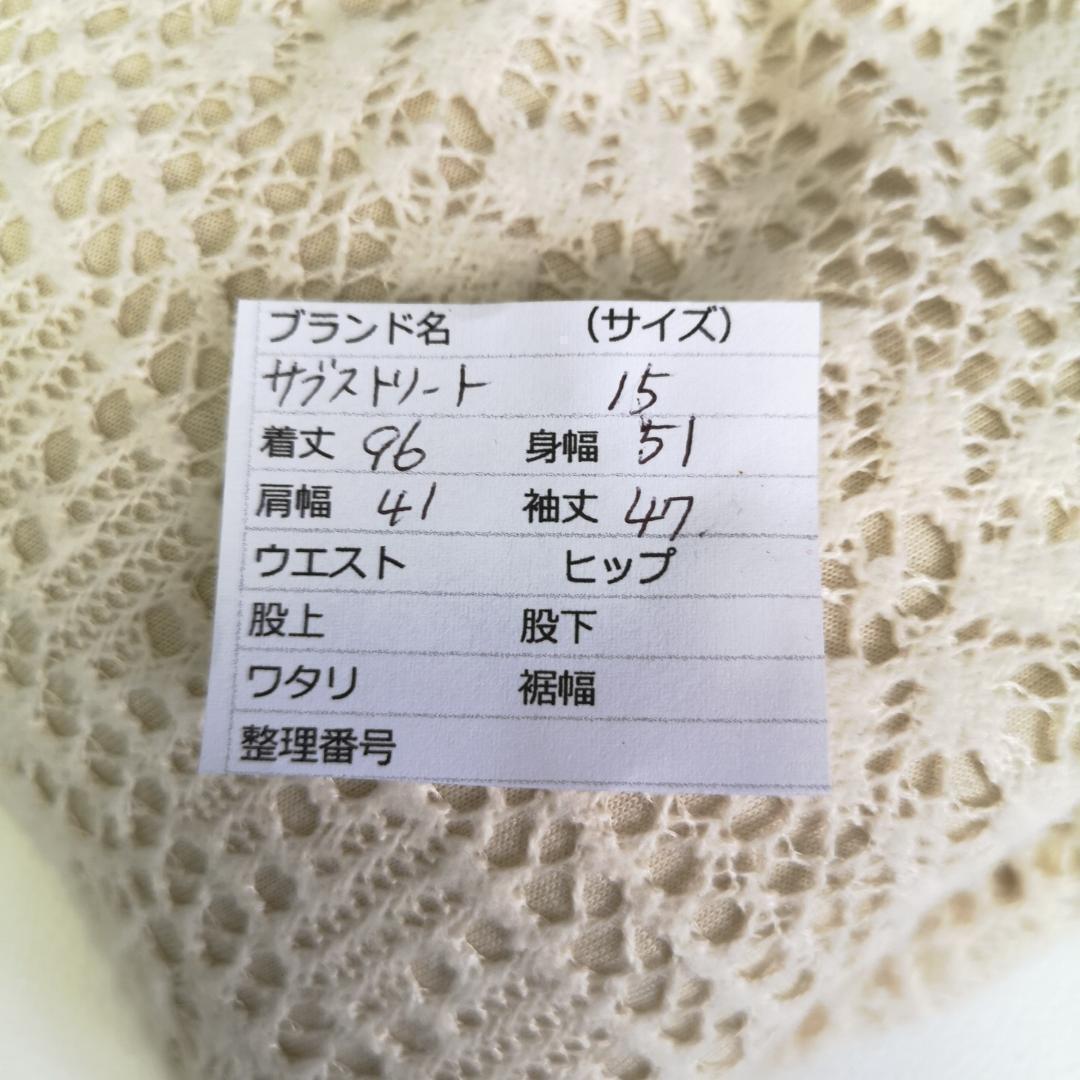 ブランド名 （サイズ）
サブストリート 15
着丈 96 身幅 51
肩幅 41 袖丈 47
ウエスト ヒップ
股上 股下
ワタリ 裾幅
整理番号